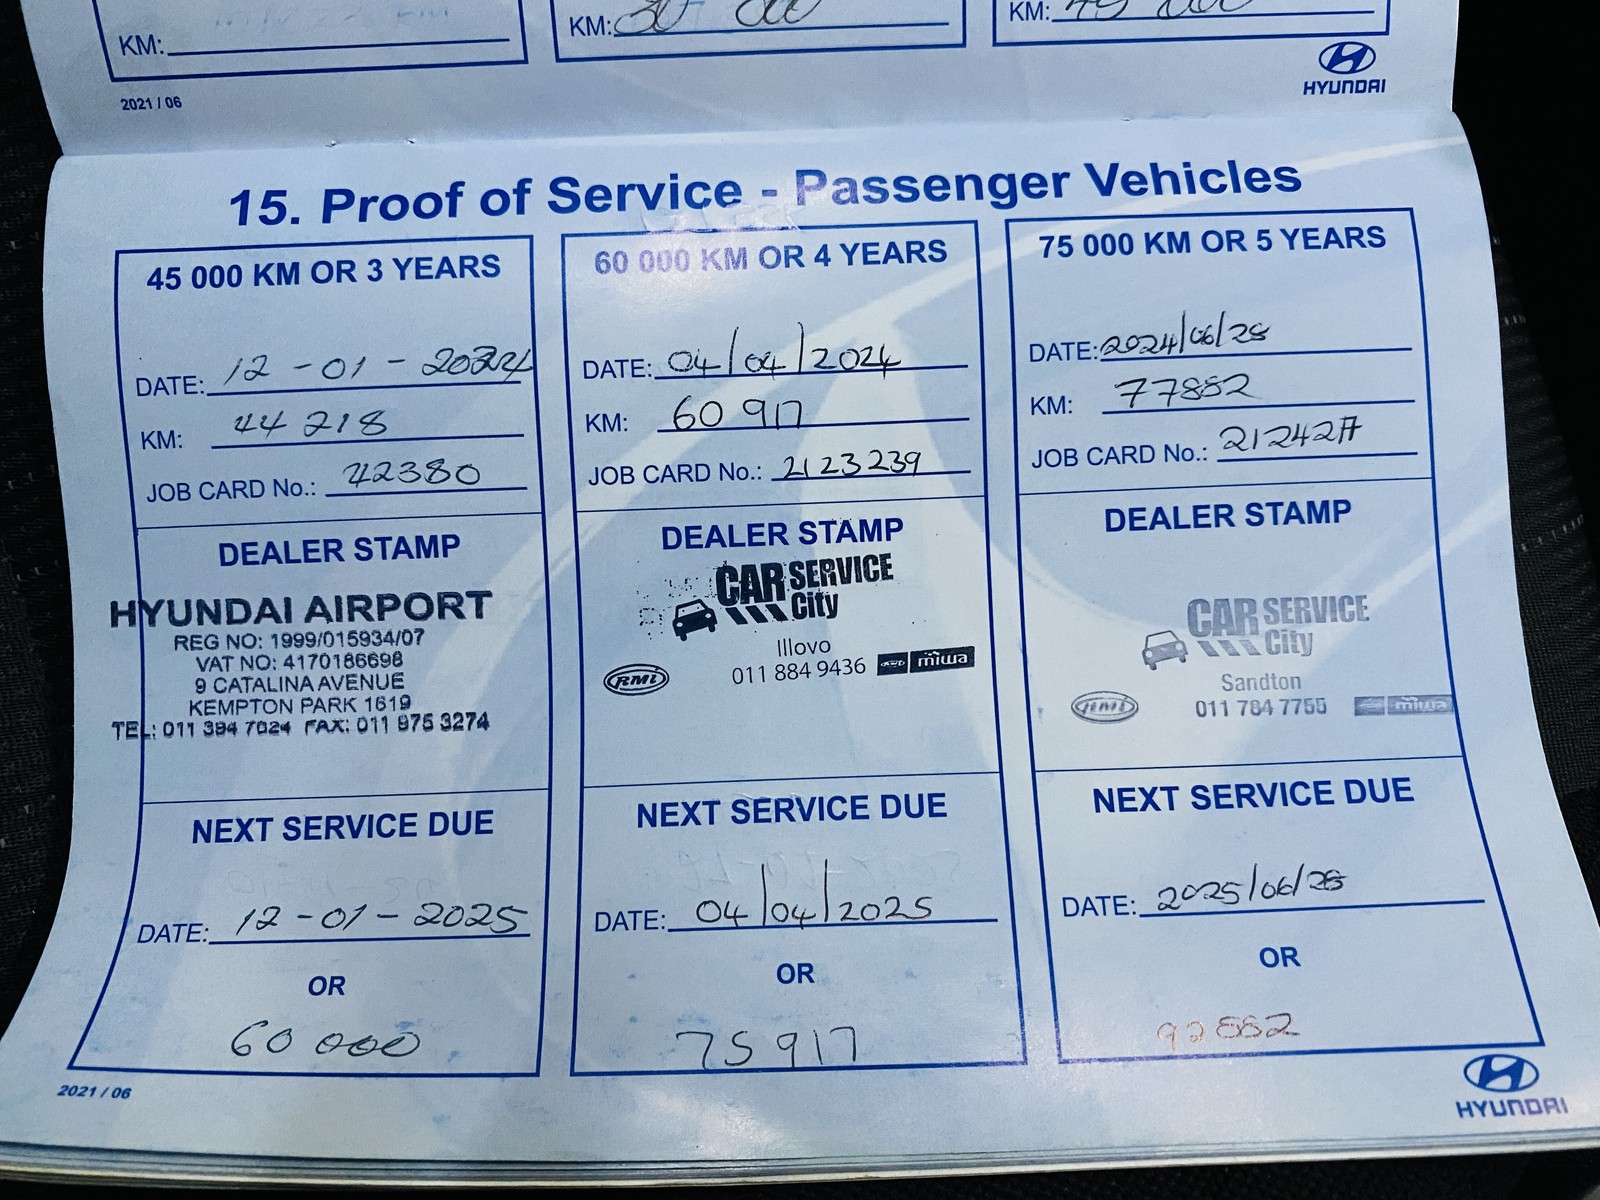 KM:
KM: 30 000
KM: 45 000
2021 / 06
HYUNDAI
15. Proof of Service - Passenger Vehicles
45 000 KM OR 3 YEARS
DATE: 12 - 01 - 2024
KM: 44 218
JOB CARD No.: 42380
DEALER STAMP
HYUNDAI AIRPORT
REG NO: 1999/015934/07
VAT NO: 4170186698
9 CATALINA AVENUE
KEMPTON PARK 1619
TEL: 011 394 7624 FAX: 011 975 3274
NEXT SERVICE DUE
DATE: 12 - 01 - 2025
OR
60 000
60 000 KM OR 4 YEARS
DATE: 04/04/2024
KM: 60 917
JOB CARD No.: 2123239
DEALER STAMP
CAR SERVICE
City
Illovo
011 884 9436
RMi
miwa
NEXT SERVICE DUE
DATE: 04/04/2025
OR
75 917
75 000 KM OR 5 YEARS
DATE: 2024/06/28
KM: 77882
JOB CARD No.:
DEALER STAMP
CAR SERVICE
City
Sandton
011 784 7755
RMi
miwa
NEXT SERVICE DUE
DATE: 2025/06/28
OR
92882
2021 / 06
HYUNDAI